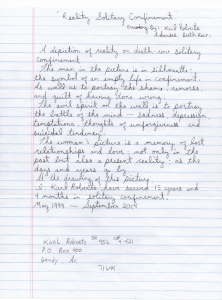 "Reality Solitary Confinement"
Drawing By: Kurk Roberts
Arkansas Death Row.
A depiction of reality on death-row solitary
confinement.
The man in the picture is in silhouette:
the symbol of an empty life in confinement.
The wall is to portray the shame, remorse
and guilt of having done wrong.
The evil spirit on the wall is to portray
the battles of the mind - sadness, depression,
temptations, thoughts of unforgiveness and
suicidal tendency.
The woman's picture is a memory of lost
relationships and love, not only in the
past but also a present reality, as the
days and years go by.
At the drawing of this picture
I, Kurk Roberts have served 15 years and
4 months in solitary confinement.
May 1999 - September 2014
Roberts
P.O. Box
Grady, Ar.